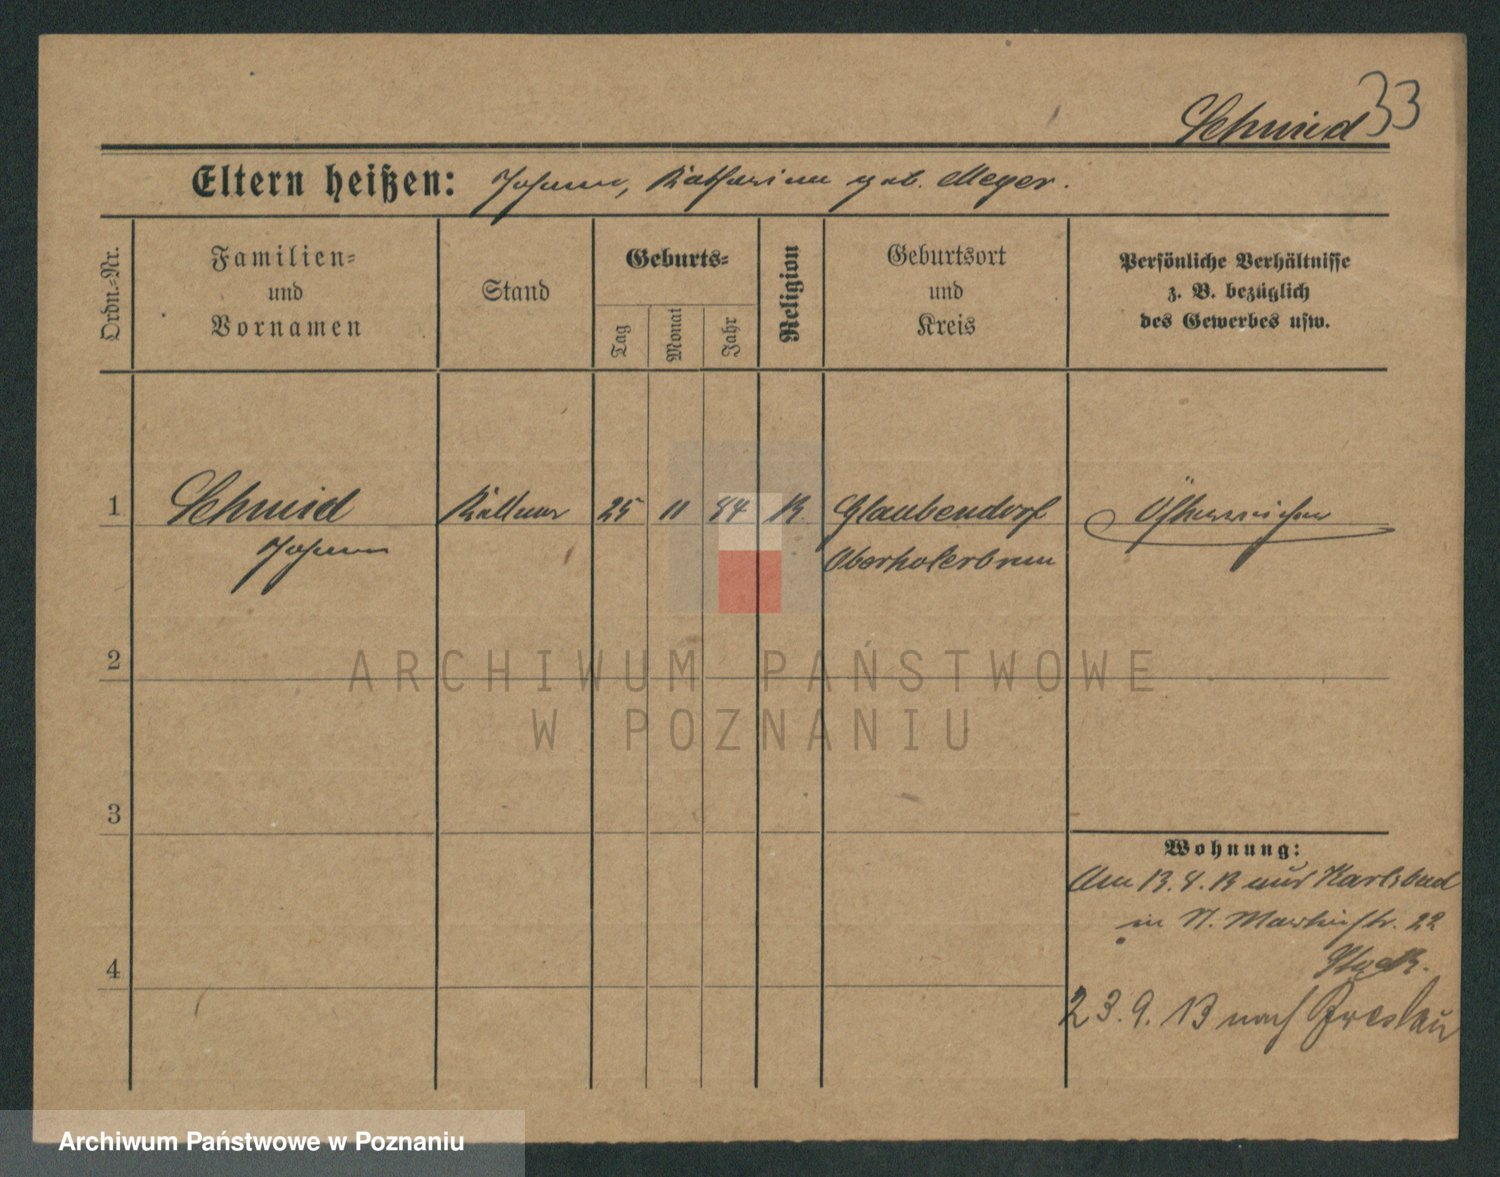 33
Schmid
Eltern heißen: Johann, Katharina geb. Meyer.
Ordn.-Nr.
Familien-
und
Vornamen
Stand
Geburts-
Tag
Monat
Jahr
Religion
Geburtsort
und
Kreis
Persönliche Verhältnisse
z. B. bezüglich
des Gewerbes usw.
1 Schmid Kellner 25 11 84 K. Glaubendorf Österreicher
Johann Oberholerbrun
2
3
4
Wohnung:
Am 13.4.13 aus Karlsbad
in St. Martinstr. 22
23.9.13 nach Breslau
ARCHIWUM PAŃSTWOWE
W POZNANIU
Archiwum Państwowe w Poznaniu